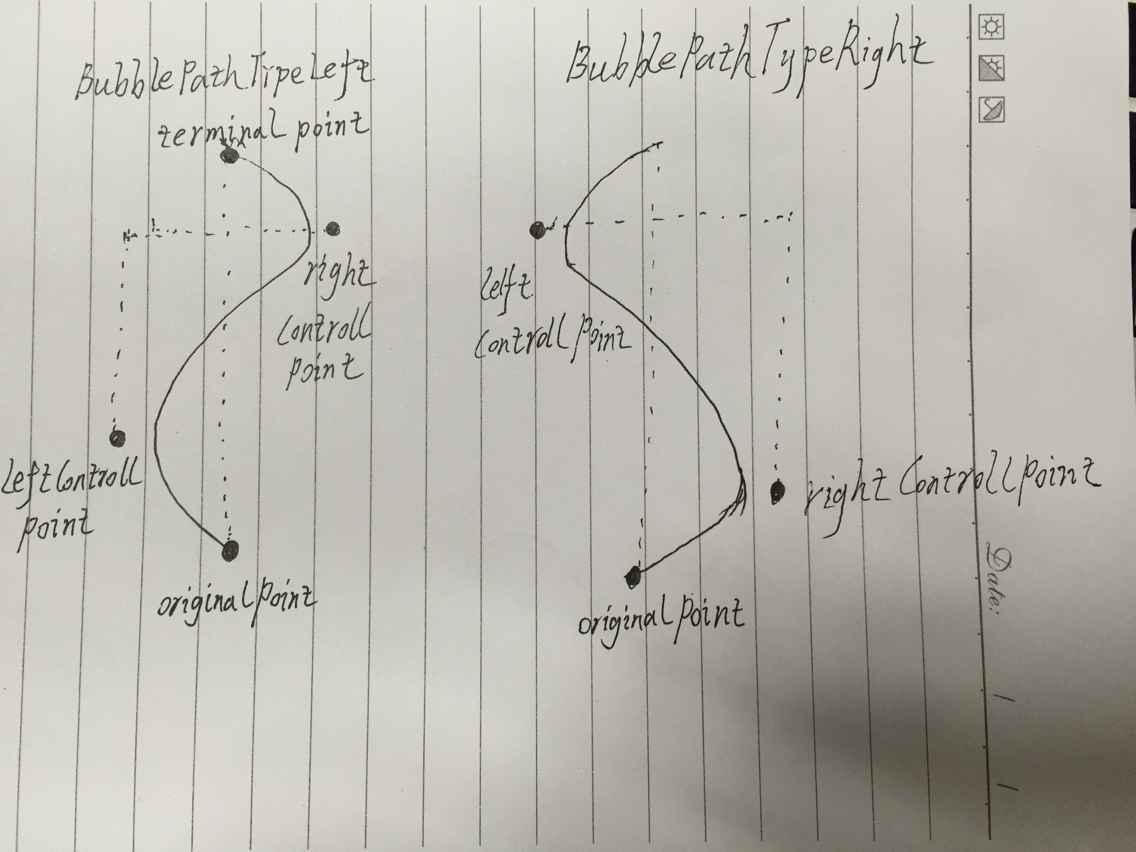 BubblePathTipeLeft
terminal point
right
controll
point
leftcontroll
point
originalpoint
BubblePathTypeRight
left
controllpoint
rightcontrollpoint
originalpoint
Date: